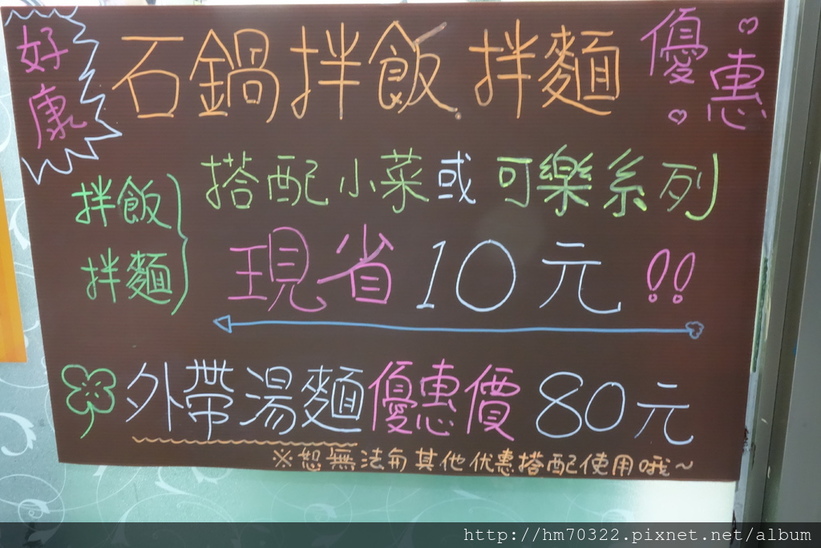 好康
石鍋拌飯 拌麵 優惠
拌飯
拌麵
搭配小菜或可樂系列
現省10元!!
外帶湯麵優惠價80元
※恕無法與其他优惠搭配使用哦~
http://hm70322.pixnet.net/album